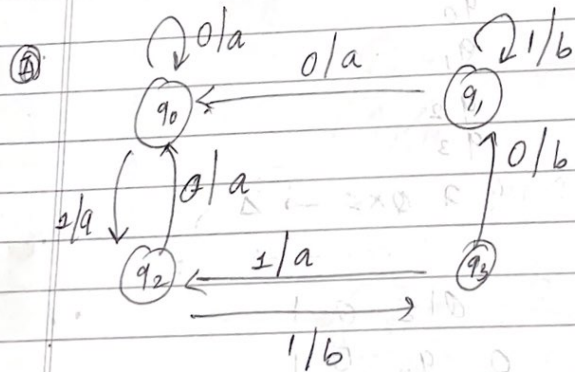 0/a
0/a
1/b
q0
q1
1/a
0/a
0/b
q2
1/a
q3
1/b